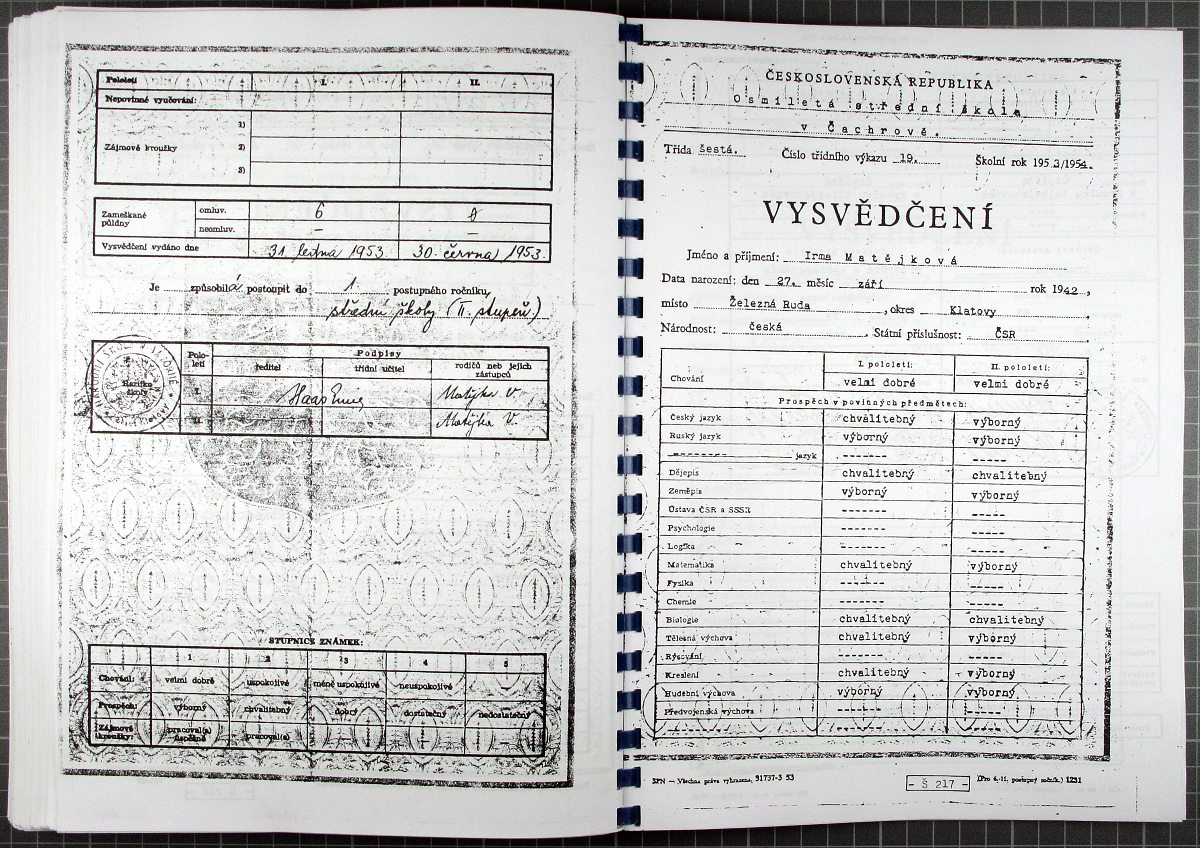 Pololetí I. II.
Nepovinné vyučování:
1)
Zájmové kroužky 2)
3)
Zameškané půldny omluv. 6 0
neomluv. — —
Vysvědčení vydáno dne 31. ledna 1953. 30. června 1953.
Je způsobilá postoupit do 1. postupného ročníku,
střední školy (II. stupeň)
Pololetí Podpisy
ředitel třídní učitel rodičů neb jejich zástupců
Razítko školy
I. Haas Matějka V.
II. Matějka V.
STUPNICE ZNÁMEK:
1 2 3 4 5
Chování: velmi dobré uspokojivé méně uspokojivé neuspokojivé
Prospěch: výborný chvalitebný dobrý dostatečný nedostatečný
Zájmové kroužky: pracoval(a) úspěšně pracoval(a)
ČESKOSLOVENSKÁ REPUBLIKA
Osmiletá střední škola
v Čachrově.
Třída šestá. Číslo třídního výkazu 19. Školní rok 1953/1954.
VYSVĚDČENÍ
Jméno a příjmení: Irma Matějková
Data narození: den 27. měsíc září rok 1942,
místo Železná Ruda, okres Klatovy
Národnost: česká Státní příslušnost: ČSR
I. pololetí: II. pololetí:
Chování velmi dobré velmi dobré
Prospěch v povinných předmětech:
Český jazyk chvalitebný výborný
Ruský jazyk výborný výborný
-------- jazyk ------- -----
Dějepis chvalitebný chvalitebný
Zeměpis výborný výborný
Ústava ČSR a SSSR ------- -----
Psychologie ------- -----
Logika ------- -----
Matematika chvalitebný výborný
Fysika ------- -----
Chemie ------- -----
Biologie chvalitebný chvalitebný
Tělesná výchova chvalitebný výborný
Rýsování ------- -----
Kreslení chvalitebný výborný
Hudební výchova výborný výborný
Předvojenská výchova ------- -----
SPN — Všechna práva vyhrazena. 31737-3 53 - Š 217 - (Pro 4.-11. postupný ročník.) 1231